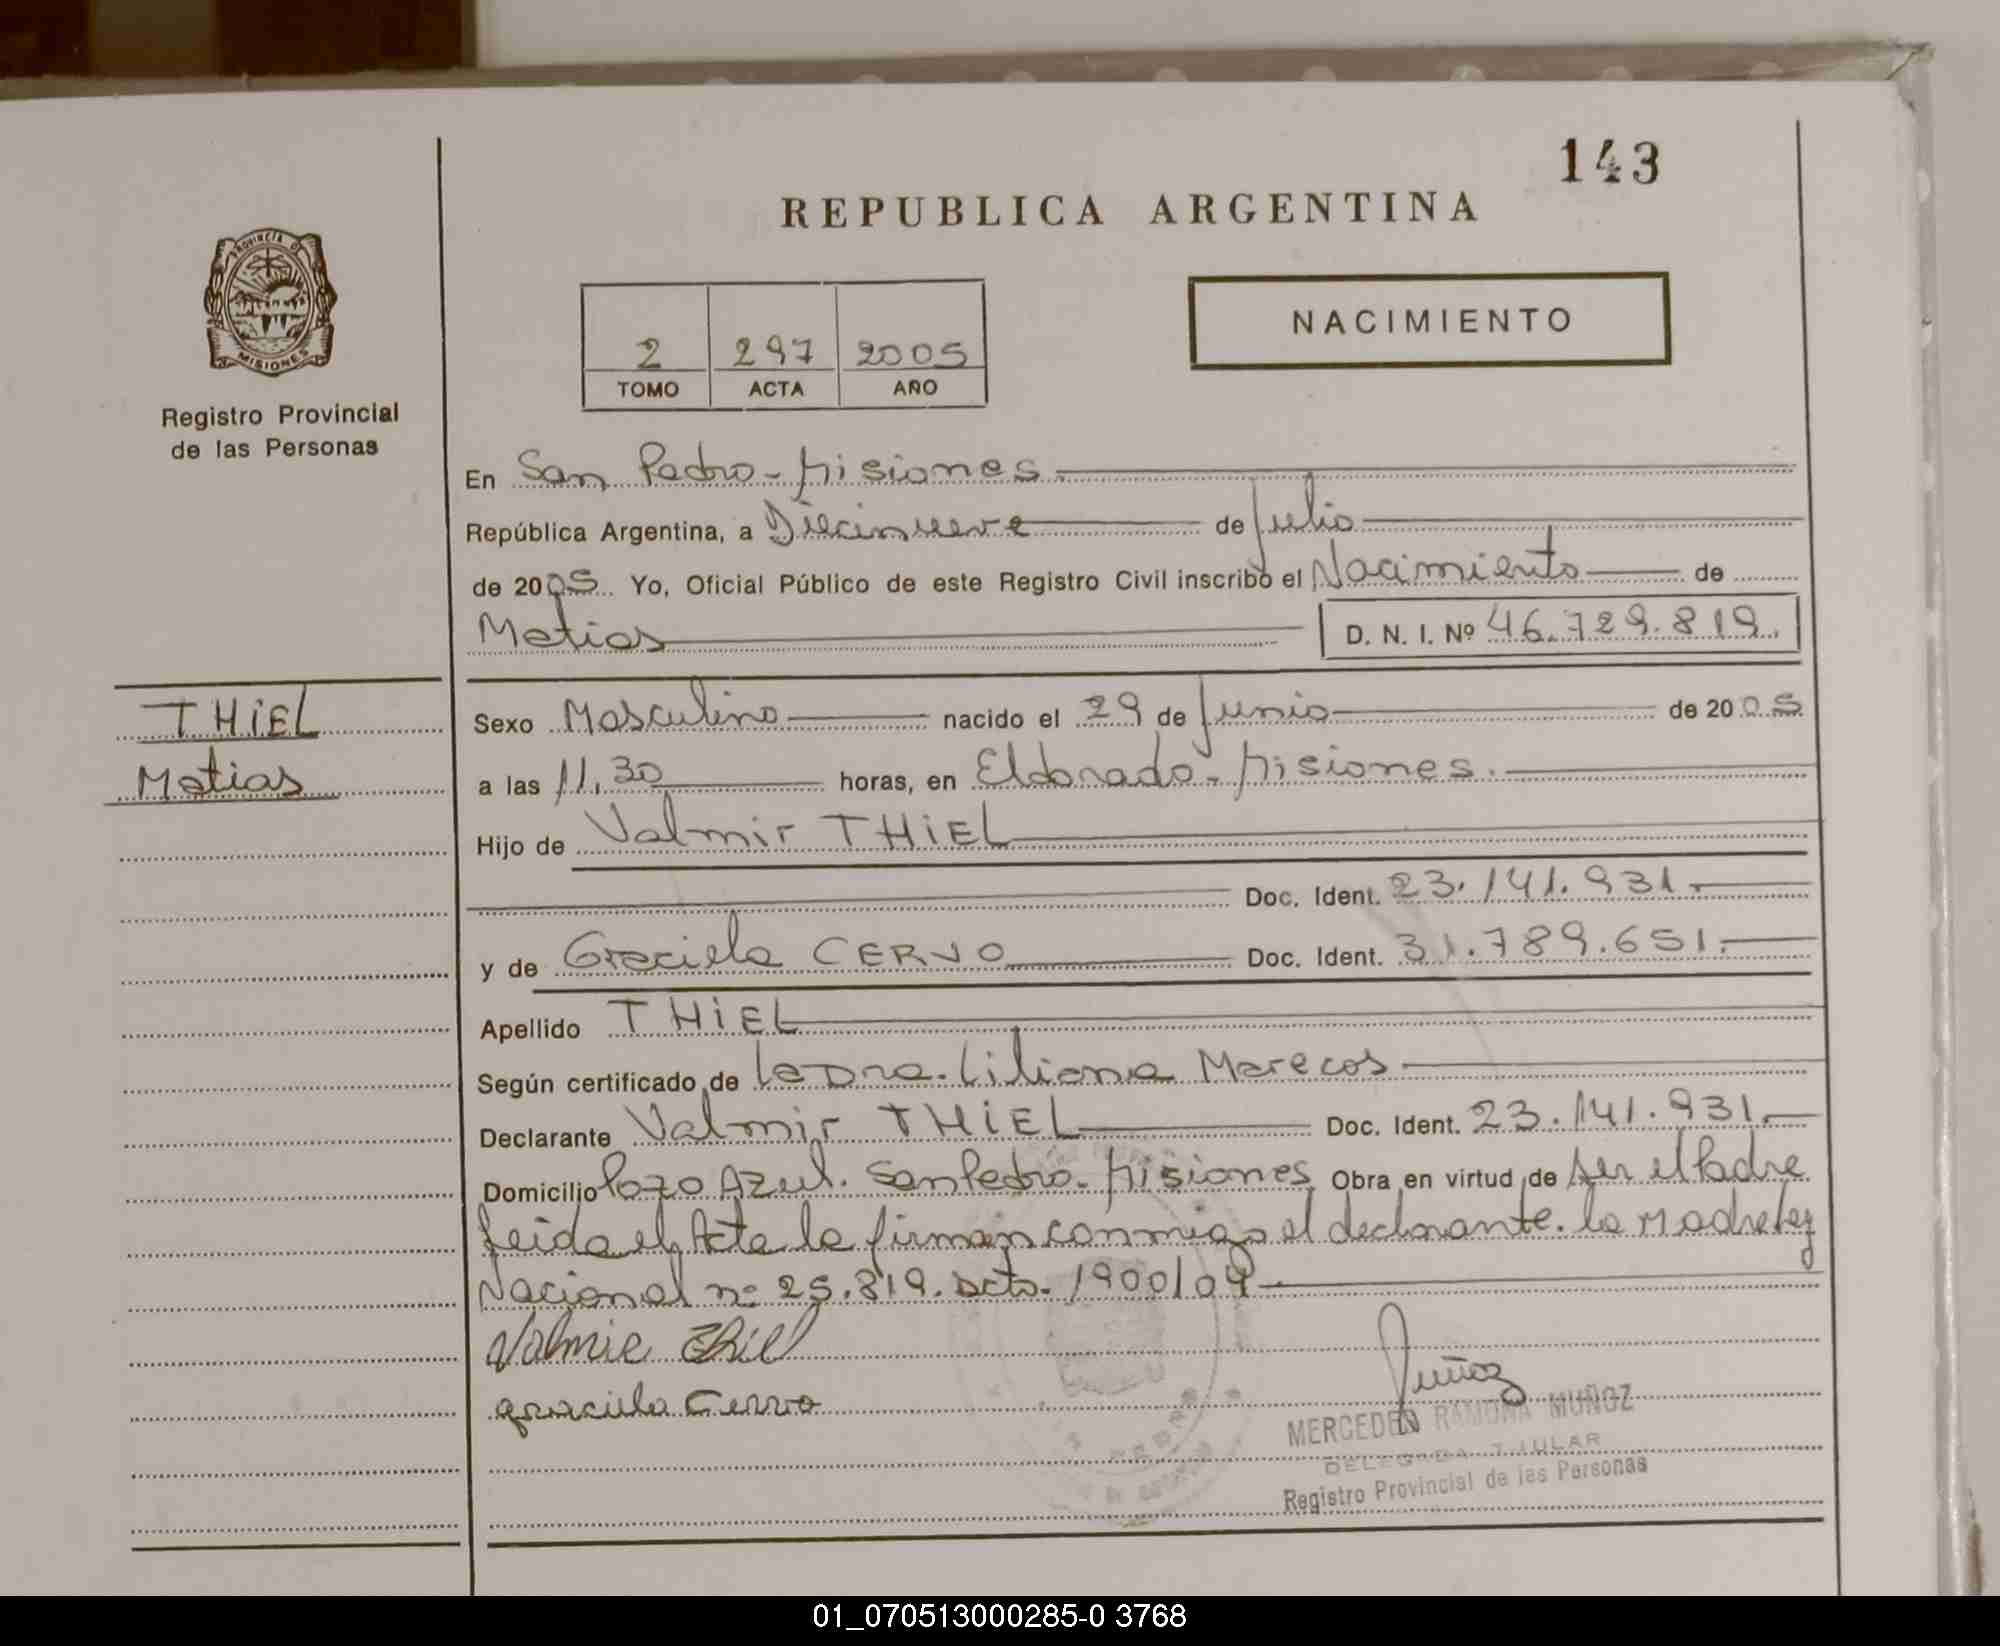 143
REPUBLICA ARGENTINA
PROVINCIA DE
MISIONES
Registro Provincial
de las Personas
2 297 2005
TOMO ACTA AÑO
NACIMIENTO
En San Pedro - Misiones.
República Argentina, a Diecinueve de Julio
de 2005. Yo, Oficial Público de este Registro Civil inscribo el Nacimiento de
Matias D. N. I. Nº 46.729.819.
THIEL
Matias
Sexo Masculino nacido el 29 de Junio de 2005
a las 11,30 horas, en Eldorado - Misiones.
Hijo de Valmir THIEL
Doc. Ident. 23.141.931.
y de Graciela CERVO Doc. Ident. 31.789.651.
Apellido THIEL
Según certificado de la Dra. Liliana Marecos
Declarante Valmir THIEL Doc. Ident. 23.141.931.
Domicilio Pozo Azul. San Pedro - Misiones Obra en virtud de ser el Padre
Leida el Acta la firman conmigo el declarante. la Madre Ley
Nacional nº 25.819. Dcto. 1900/04
Valmir Thiel
graciela Cervo
Muñoz
MERCEDES RAMONA MUÑOZ
DELEGADA TITULAR
Registro Provincial de las Personas
01_070513000285-0 3768